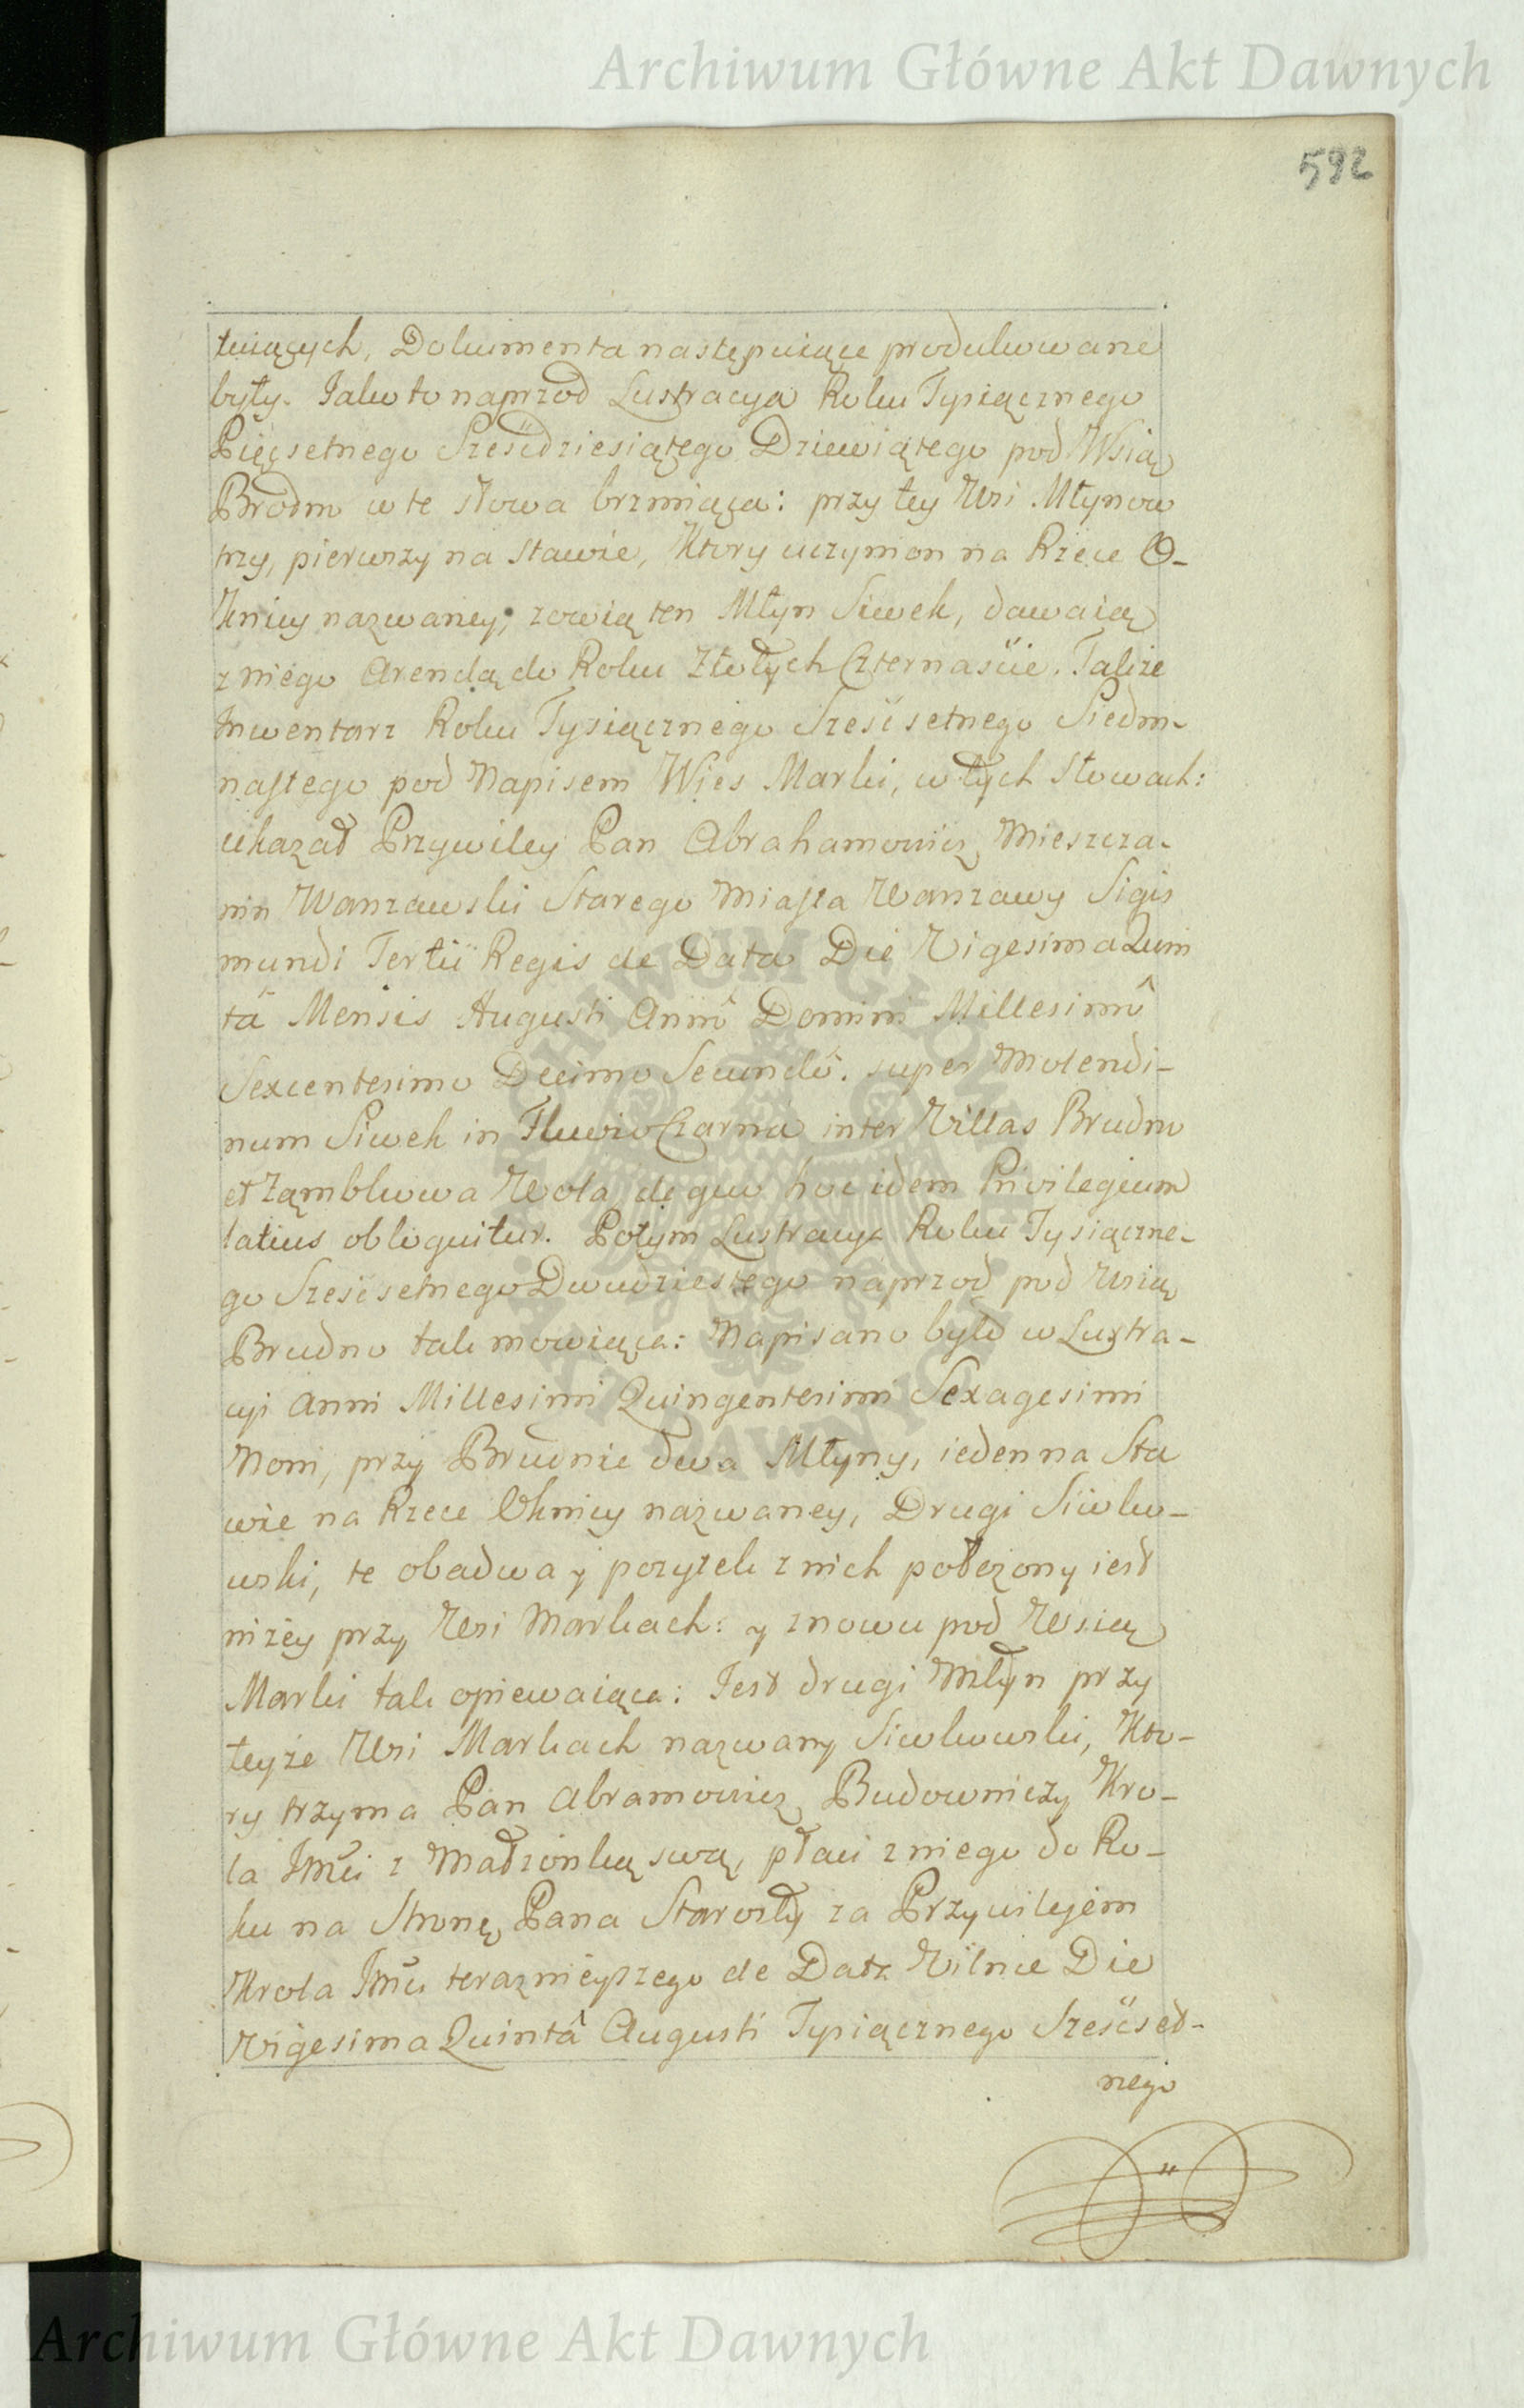 Archiwum Główne Akt Dawnych
592
tuiących, Dokumenta następuiące produkowane
były. Jako to naprzod Lustracya Roku Tysiącznego
Pięcsetnego Sześcdziesiątego Dziewiątego pod Wsią
Brodno w te słowa brzmiąca: przy tey Wsi Młynow
trzy, pierwszy na stawie, Ktory uczynion na Rzece O-
knicy nazwaney; zowią ten Młyn Siwek, dawaią
z niego Arendą do Roku Złotych Czternaście. Takze
Inwentarz Roku Tysiącznego Sześcsetnego Siedm-
nastego pod Napisem Wies Marki, w tych słowach:
ukazał Przywiley Pan Abrahamowicz Mieszcza-
nin Warszawski Starego Miasta Warszawy Sigis
mundi Tertii Regis de Data Die Vigesima Quin
tâ Mensis Augusti Annô Domini Millesimô
Sexcentesimo Decimo Secundô. super Molendi-
num Siwek in Fluvio Czarna inter Villas Brudno
et Ząmbkowa Wola de quo hoc idem Privilegium
latius obloquitur. Potym Lustracya Roku Tysiączne-
go Sześcsetnego Dwudziestego naprzod pod Wsią
Brudno tak mowiąca: Napisano było w Lustra-
cyi Anni Millesimi Quingentesimi Sexagesimi
Noni, przy Brudnie dwa Młyny, ieden na Sta
wie na Rzece Oknicy nazwaney, Drugi Siwko-
wski, te obadwa y pozytek z nich położony iest
niżey przy Wsi Markach: y znowu pod Wsią
Marki tak opiewaiąca: Jest drugi Młyn przy
teyże Wsi Markach nazwany Siwkowski, Kto-
ry trzyma Pan Abramowicz Budowniczy Kro-
la Jmci z Małzonką swą, płaci z niego do Ro-
ku na Stronę Pana Starosty za Przywilejem
Krola Jmci teraznieyszego de Data Vilnæ Die
Vigesima Quintâ Augusti Tysiącznego Sześcset-
nego
Archiwum Główne Akt Dawnych